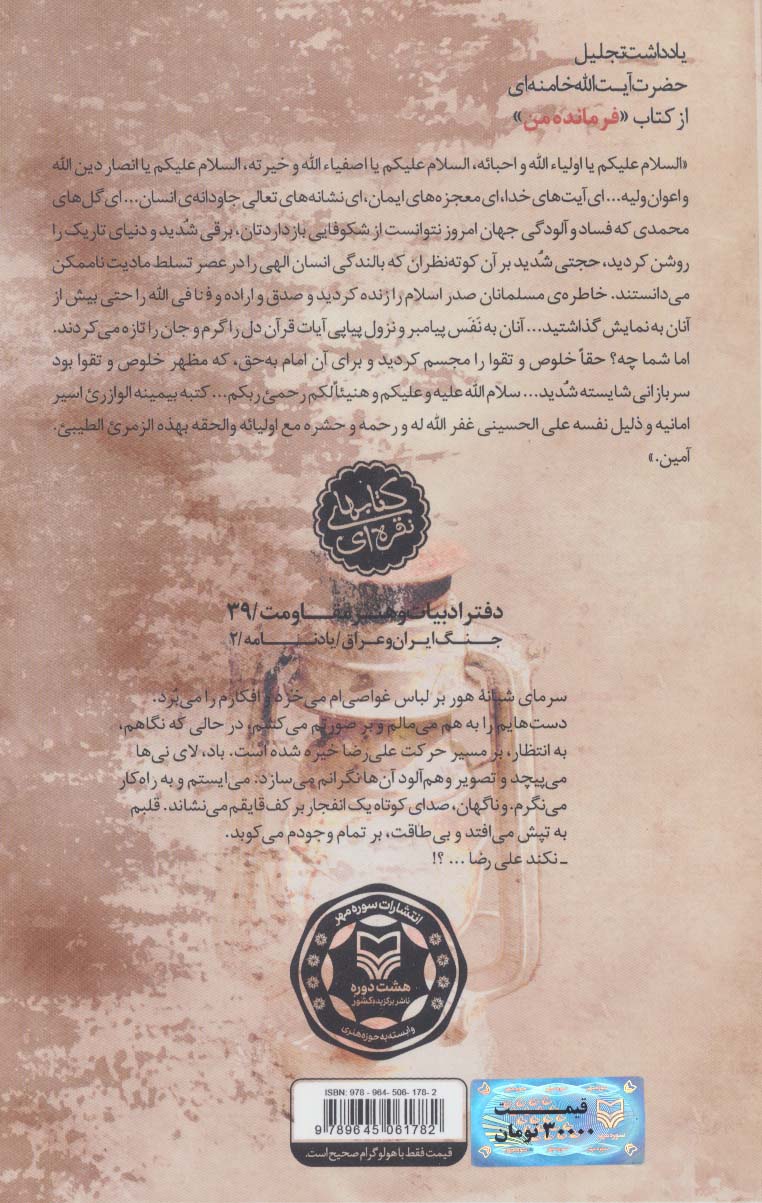 یادداشت تجلیل
حضرت آیت الله خامنه‌ای
از کتاب «فرمانده من»
«السلام علیکم یا اولیاء الله و احبائه، السلام علیکم یا اصفیاء الله و خیرته، السلام علیکم یا انصار دین الله
و اعوان ولیه... ای آیت‌های خدا، ای معجزه‌های ایمان، ای نشانه‌های تعالی جاودانه‌ی انسان... ای گل‌های
محمدی که فساد و آلودگی جهان امروز نتوانست از شکوفایی باز داردتان، برقی شُدید و دنیای تاریک را
روشن کردید، حجتی شُدید بر آن کوته‌نظران که بالندگی انسان الهی را در عصر تسلط مادیت ناممکن
می‌دانستند. خاطره‌ی مسلمانان صدر اسلام را زنده کردید و صدق و اراده و فنا فی الله را حتی بیش از
آنان به نمایش گذاشتید... آنان به نَفَس پیامبر و نزول پیاپی آیات قرآن دل را گرم و جان را تازه می‌کردند.
اما شما چه؟ حقاً خلوص و تقوا را مجسم کردید و برای آن امام به‌حق، که مظهر خلوص و تقوا بود
سربازانی شایسته شُدید... سلام الله علیه و علیکم و هنیئاً لکم رحمئ ربکم... کتبه بیمینه الوازرئ اسیر
امانیه و ذلیل نفسه علی الحسینی غفر الله له و رحمه و حشره مع اولیائه والحقه بهذه الزمرئ الطیبئ.
آمین.»
کتابهای
نقره‌ای
دفتر ادبیات و هنر مقاومت/۳۹
جنگ ایران و عراق/یادنامه/۲
سرمای شبانهٔ هور بر لباس غواصی‌ام می‌خزد و افکارم را می‌بُرد.
دست‌هایم را به هم می‌مالم و بر صورتم می‌کشم، در حالی که نگاهم،
به انتظار، بر مسیر حرکت علی‌رضا خیره شده است. باد، لای نی‌ها
می‌پیچد و تصویر وهم‌آلود آن‌ها نگرانم می‌سازد. می‌ایستم و به راه‌کار
می‌نگرم. و ناگهان، صدای کوتاه یک انفجار بر کف قایقم می‌نشاند. قلبم
به تپش می‌افتد و بی‌طاقت، بر تمام وجودم می‌کوبد.
ـ نکند علی رضا ... ؟!
انتشارات سوره مهر
هشت دوره
ناشر برگزیده کشور
وابسته به حوزه هنری
ISBN: 978 - 964 - 506 - 178 - 2
9 789645 061782
قیمت فقط با هولوگرام صحیح است.
قیمت
۳۰۰۰۰ تومان
سوره مهر